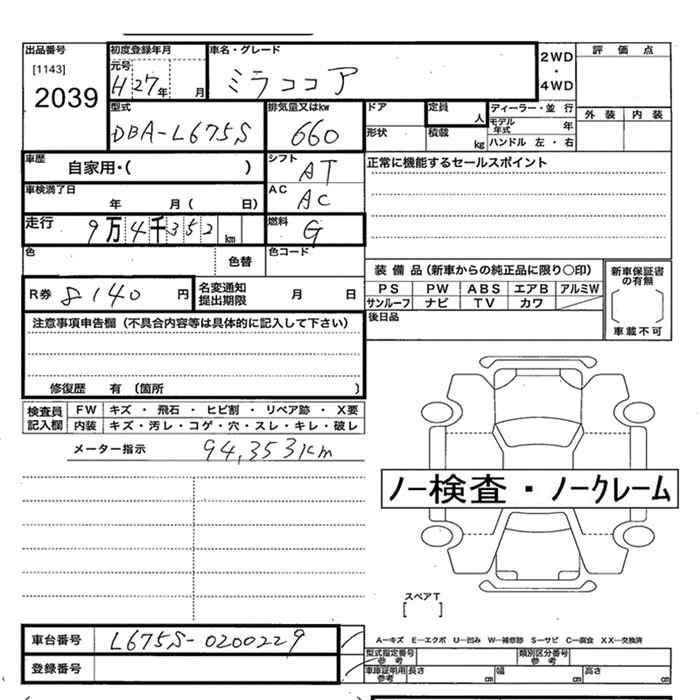 出品番号 初度登録年月 車名・グレード 2WD・4WD 評価点
[1143] 元号 H27年 月 ミラココア
2039
型式 排気量又はkw ドア 定員 人 ディーラー・並行 外装 内装
DBA-L675S 660 形状 積載 kg モデル年式 年
ハンドル 左・右
車歴 シフト 正常に機能するセールスポイント
自家用・( ) AT
車検満了日 AC
年 月( 日) AC
走行 9万4千352km 燃料 G
色 色替 色コード
装備品(新車からの純正品に限り○印) 新車保証書の有無
R券 8140円 名変通知提出期限 月 日 PS PW ABS エアB アルミW
サンルーフ ナビ TV カワ [ ]
注意事項申告欄(不具合内容等は具体的に記入して下さい) 後日品 車載不可
修復歴 有 (箇所 )
検査員記入欄 FW キズ・飛石・ヒビ割・リペア跡・X要
内装 キズ・汚レ・コゲ・穴・スレ・キレ・破レ
メーター指示 94,353km
ノー検査・ノークレーム
スペアT
[ ]
車台番号 L675S-0200229 A―キズ E―エクボ U―凹み W―補修跡 S―サビ C―腐食 XX―交換済
型式指定番号 参考 類別区分番号 参考
登録番号 車庫証明用 参考 長さ cm 幅 cm 高さ cm